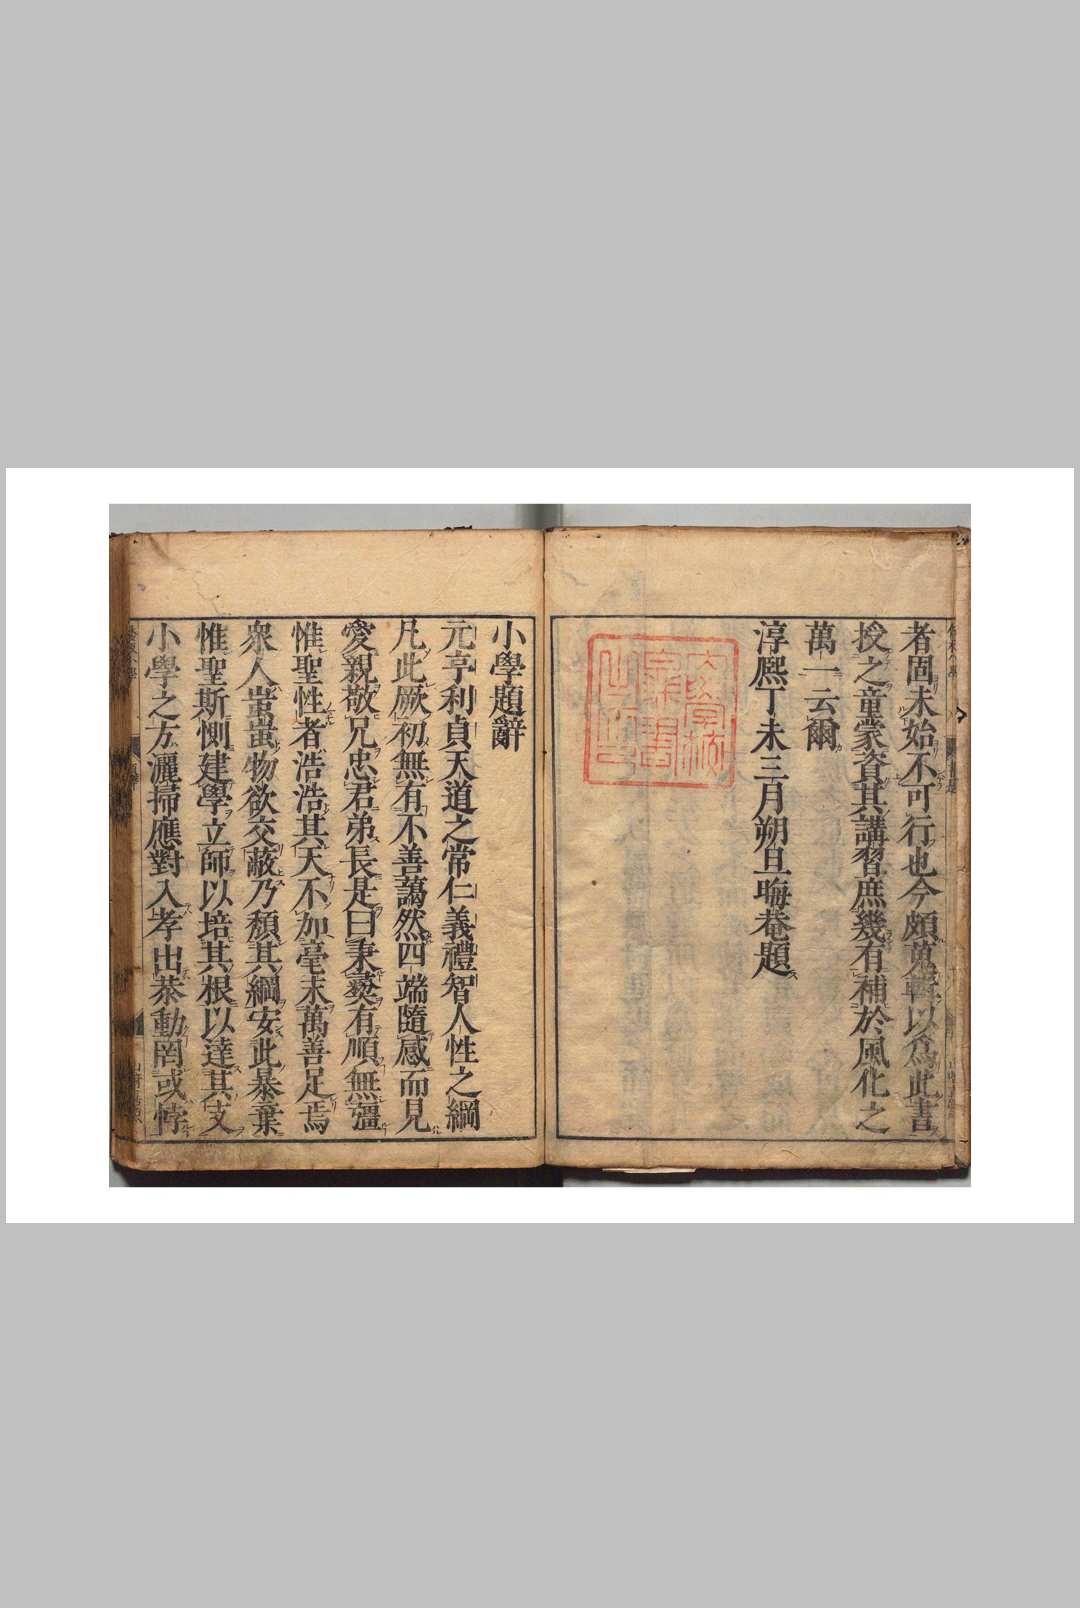 者固未始不可行也今頗蒐輯以爲此書
授之童蒙資其講習庶幾有補於風化之
萬一云爾
淳熈丁未三月朔旦晦菴題
小學題辭
元亨利貞天道之常仁義禮智人性之綱
凡此厥初無有不善藹然四端隨感而見
愛親敬兄忠君弟長是曰秉彜有順無彊
惟聖性者浩浩其天不加毫末萬善足焉
衆人蚩蚩物欲交蔽乃頹其綱安此暴棄
惟聖斯惻建學立師以培其根以達其支
小學之方灑掃應對入孝出恭動罔或悖